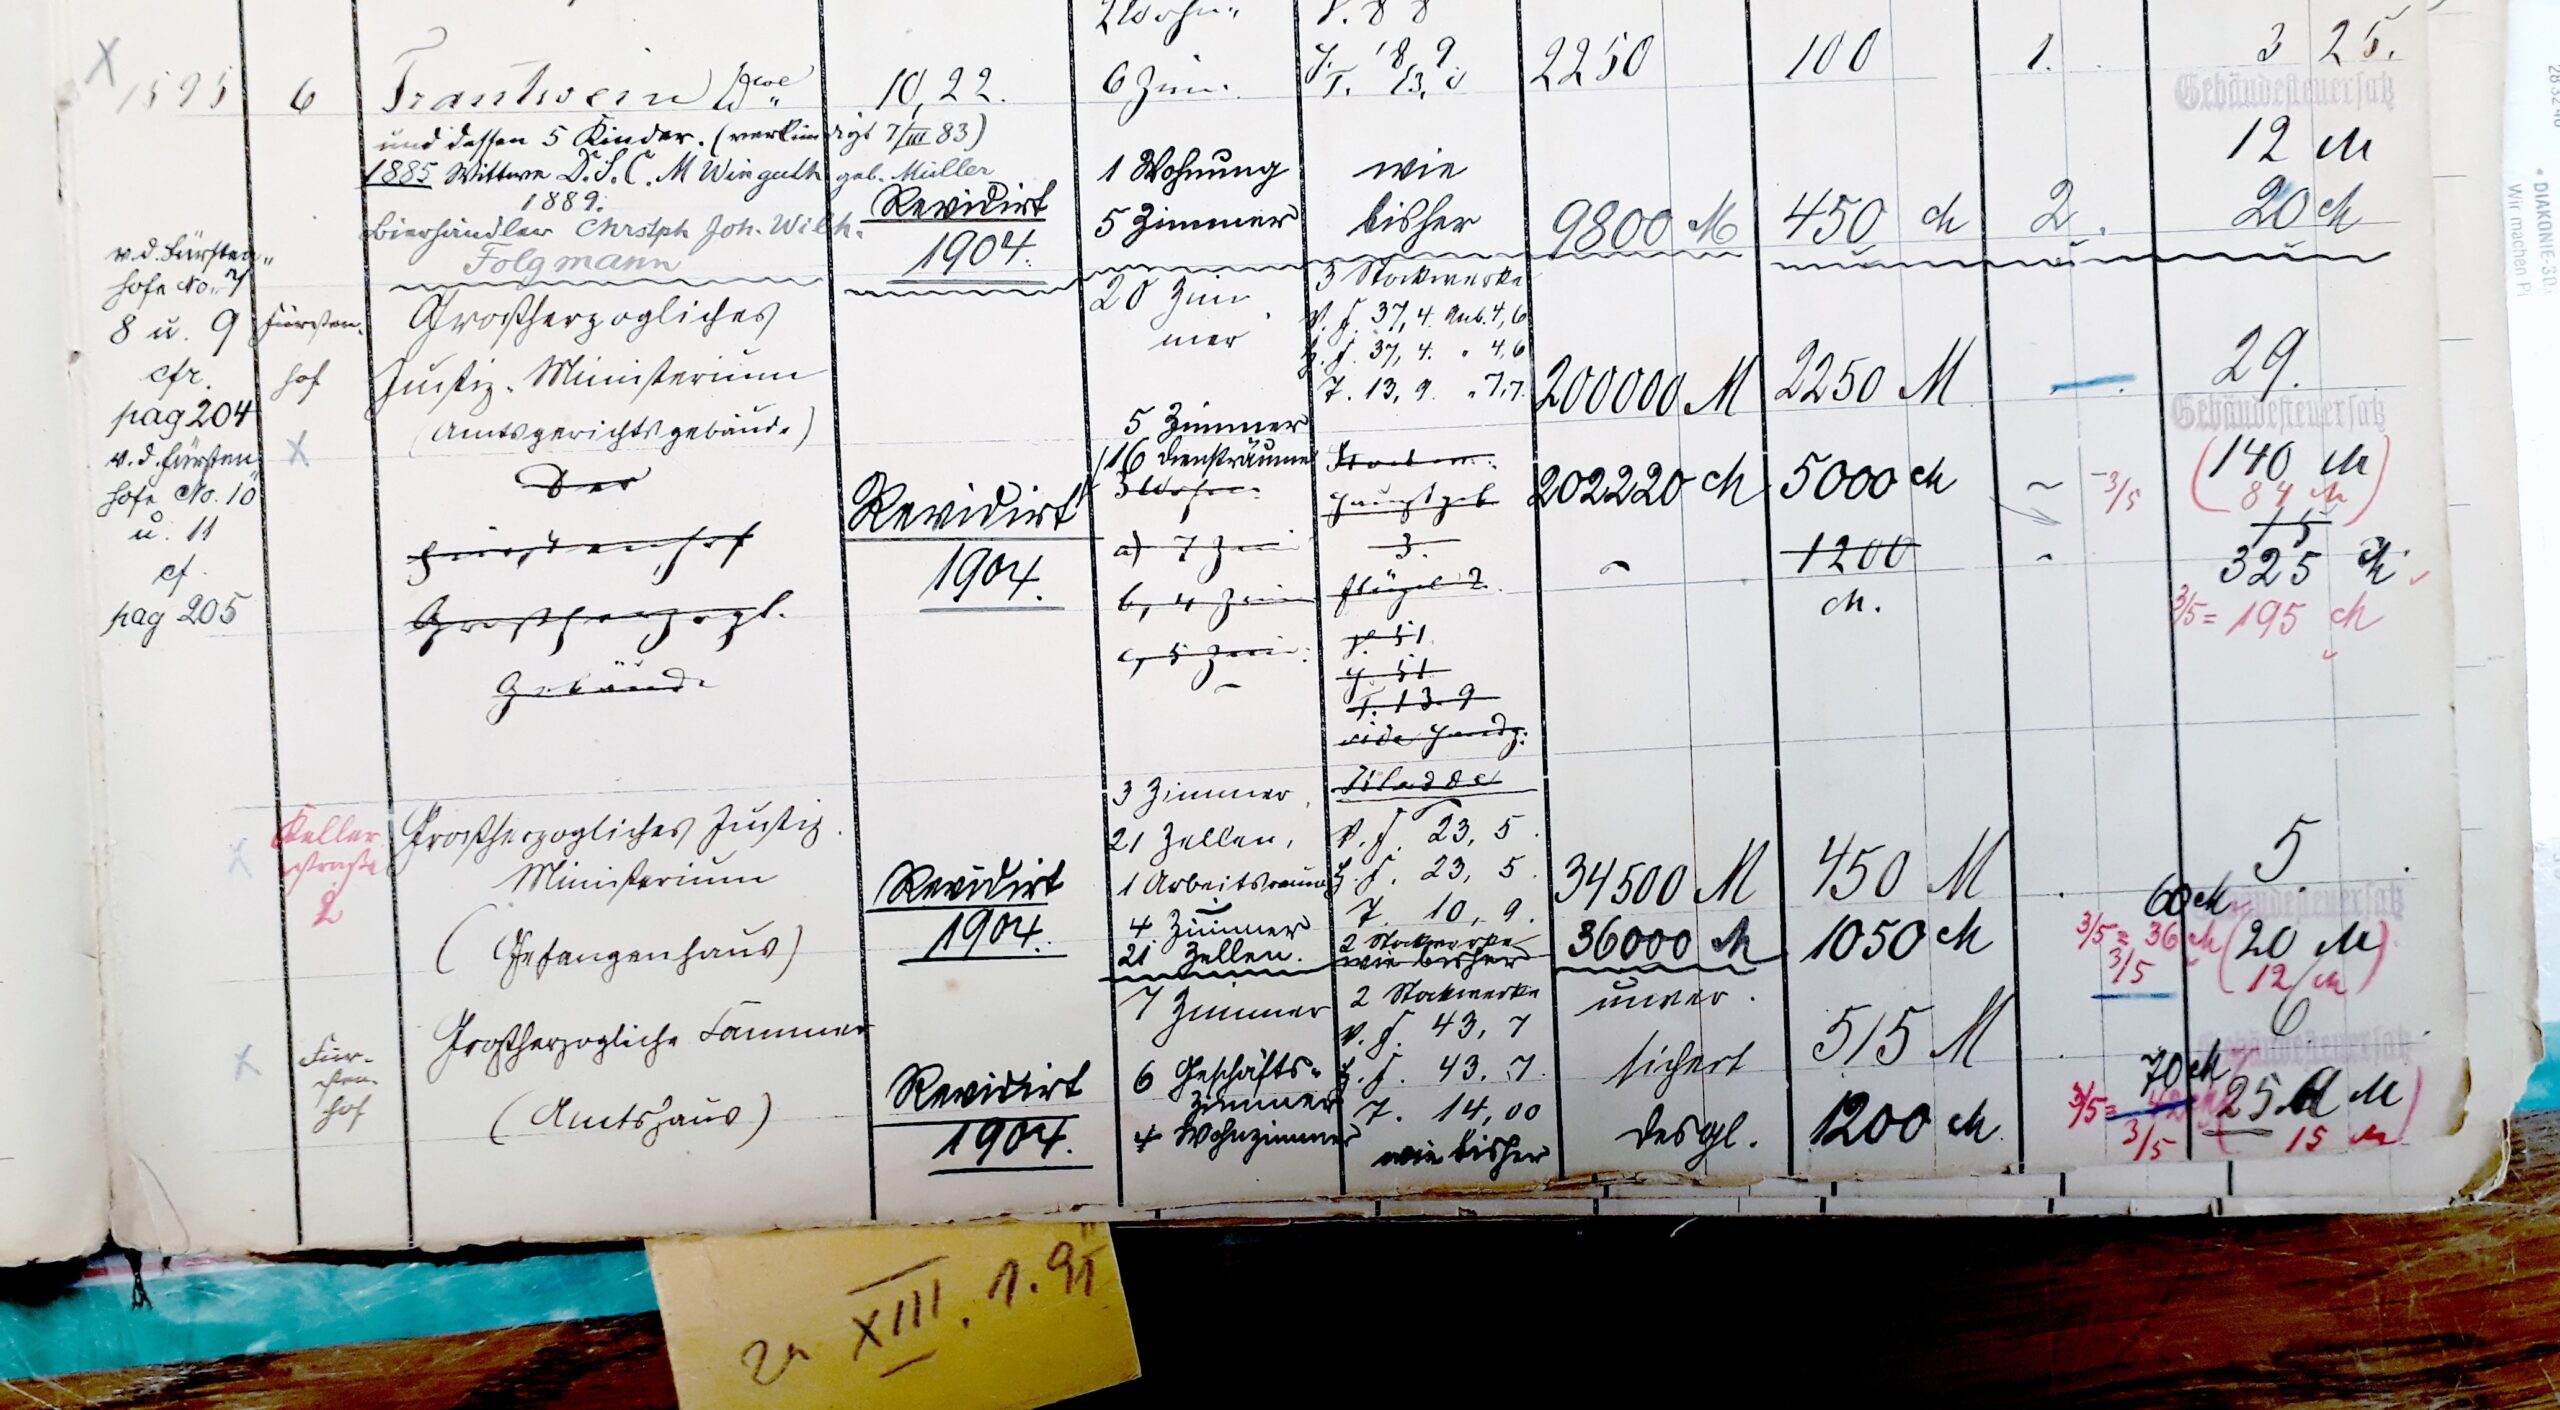 6 Zim.
2250
100
1.
3 25.
1595
6
Trautwein Wwe
10,22.
Gebäudesteuersatz
und dessen 5 Kinder. (verkündigt 7/III 83)
12 M
1885 Wittwe D. S. C. M Winguth geb. Müller
1 Wohnung
wie
1889.
Revidirt
5 Zimmer
bisher
9800 M
450 M
2.
20 M
Bierhändler Chrstph Joh. Wilh.
1904.
Folgmann
v. d. Fürsten-
hofe No. 7
8 u. 9
cfr.
pag 204
v. d. Fürsten-
hofe No. 10
u. 11
cf.
pag 205
Fürsten-
hof
Großherzogliches
Justiz-Ministerium
(Amtsgerichtsgebäude)
20 Zim
mer
3 Stockwerke
V. f. 37,4. Anb. 4,6
H. f. 37,4. " 4,6
T. 13,9. " 7,7.
200000 M
2250 M
29.
Gebäudesteuersatz
5 Zimmer
16 Diensträume
202220 M
5000 M
3/5
(140 M)
84 M
Der
Fürstenhof
Großherzogl.
Gebäude
Revidirt
1904.
3 Wohn.
a) 7 Zim
b, 4 Zim
c, 5 Zim.
Hauptgeb
3.
Flügel 2.
T. 13.9
1200
M.
15
325 M.
3/5 = 195 M
Kladde
Keller
straße
2
Großherzogliches Justiz-
Ministerium
(Gefangenhaus)
Revidirt
1904.
3 Zimmer,
21 Zellen,
1 Arbeitsraum
4 Zimmer
21 Zellen.
V. f. 23,5.
H. f. 23,5.
T. 10,9.
2 Stockwerke
wie bisher
34500 M
450 M
5
36000 M
1050 M
60 M
3/5 = 36 M
3/5
Gebäudesteuersatz
(20 M)
12 M
Für-
sten-
hof
Großherzogliche Kammer
(Amtshaus)
Revidirt
1904.
7 Zimmer
6 Geschäfts-
zimmer
4 Wohnzimmer
2 Stockwerke
V. f. 43,7
H. f. 43.7.
T. 14,00
wie bisher
unver-
sichert
desgl.
515 M
1200 M
6
70 M
3/5 = 42 M
3/5
Gebäudesteuersatz
25 M
15 M
XIII. 1. 91
DIAKONIE
Wir machen